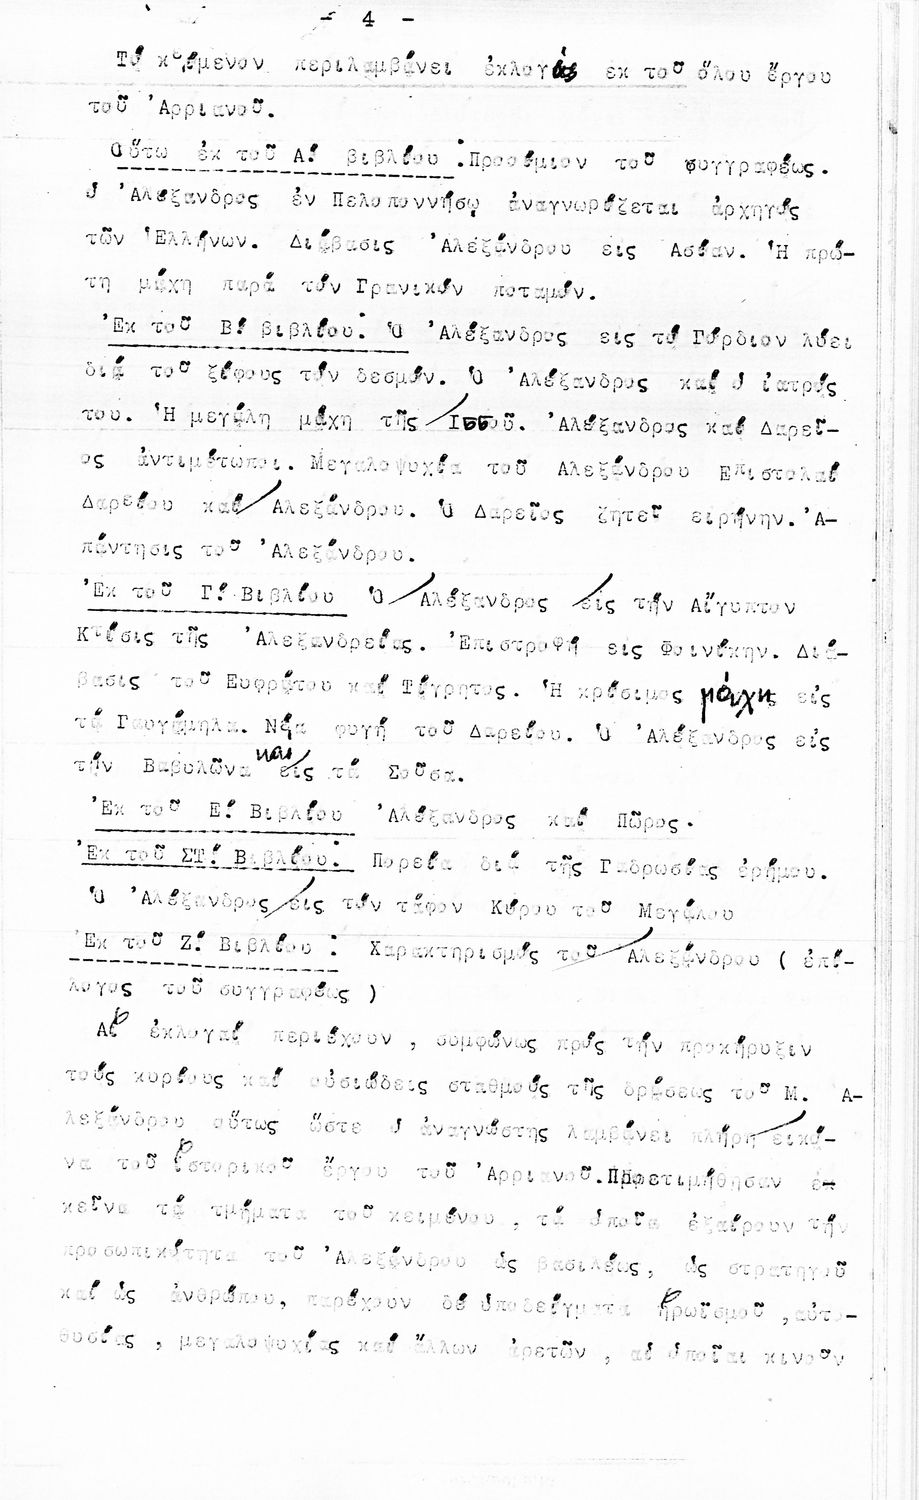 - 4 -
Τό κείμενον περιλαμβάνει ἐκλογάς ἐκ τοῦ ὅλου ἔργου
τοῦ Ἀρριανοῦ.
Οὕτω ἐκ τοῦ Α! βιβλίου : Προοίμιον τοῦ συγγραφέως.
ὁ Ἀλέξανδρος ἐν Πελοποννήσῳ ἀναγνωρίζεται ἀρχηγός
τῶν Ἑλλήνων. Διάβασις Ἀλεξάνδρου εις Ασίαν. Ἡ πρώ-
τη μάχη παρά τόν Γρανικόν ποταμόν.
Ἐκ τοῦ Β! βιβλίου: Ὁ Ἀλέξανδρος εις τό Γόρδιον λύει
διά τοῦ ξίφους τόν δεσμόν. Ὁ Ἀλέξανδρος καί ὁ ἰατρός
του. Ἡ μεγάλη μάχη τῆς Ισσοῦ. Ἀλέξανδρος καί Δαρεῖ-
ος ἀντιμέτωποι. Μεγαλοψυχία τοῦ Αλεξάνδρου Επιστολαί
Δαρείου καί Αλεξάνδρου. Ὁ Δαρεῖος ζητεῖ ειρήνην. Ἀ-
πάντησις τοῦ Ἀλεξάνδρου.
Ἐκ τοῦ Γ! Βιβλίου Ὁ Αλέξανδρος εἰς τήν Αἴγυπτον
Κτίσις τῆς Ἀλεξανδρείας. Ἐπιστροφή εις Φοινίκην. Διά-
βασις τοῦ Ευφράτου καί Τίγρητος. Ἡ κρίσιμος μάχη εἰς
τά Γαυγάμηλα. Νέα φυγή τοῦ Δαρείου. Ὁ Ἀλέξανδρος εἰς
τήν Βαβυλῶνα και εἰς τά Σοῦσα.
Ἐκ τοῦ Ε! Βιβλίου Ἀλέξανδρος καί Πῶρος.
Ἐκ τοῦ ΣΤ! Βιβλίου: Πορεία διά τῆς Γαδρωσίας ἐρήμου.
Ὁ Ἀλέξανδρος εις τόν τάφον Κύρου τοῦ Μεγάλου
Ἐκ τοῦ Ζ! Βιβλίου : Χαρακτηρισμός τοῦ Αλεξάνδρου ( ἐπί-
λογος τοῦ συγγραφέως )
Αἱ ἐκλογαί περιέχουν , συμφώνως πρός τήν προκήρυξιν
τούς κυρίους καί οὐσιώδεις σταθμούς τῆς δράσεως τοῦ Μ. Α-
λεξάνδρου οὕτως ὥστε ὁ ἀναγνώστης λαμβάνει πλήρη εικό-
να τοῦ ἱστορικοῦ ἔργου τοῦ Ἀρριανοῦ. Προετιμήθησαν ἐ-
κεῖνα τά τμήματα τοῦ κειμένου , τά ὁποῖα ἐξαίρουν τήν
προσωπικότητα τοῦ Ἀλεξάνδρου ὡς βασιλέως, ὡς στρατηγοῦ
καί ὡς ἀνθρώπου, παρέχουν δέ ὑποδείγματα ἡρωϊσμοῦ , αὐτο-
θυσίας , μεγαλοψυχίας καί ἄλλων ἀρετῶν , αἱ ὁποῖαι κινοῦν